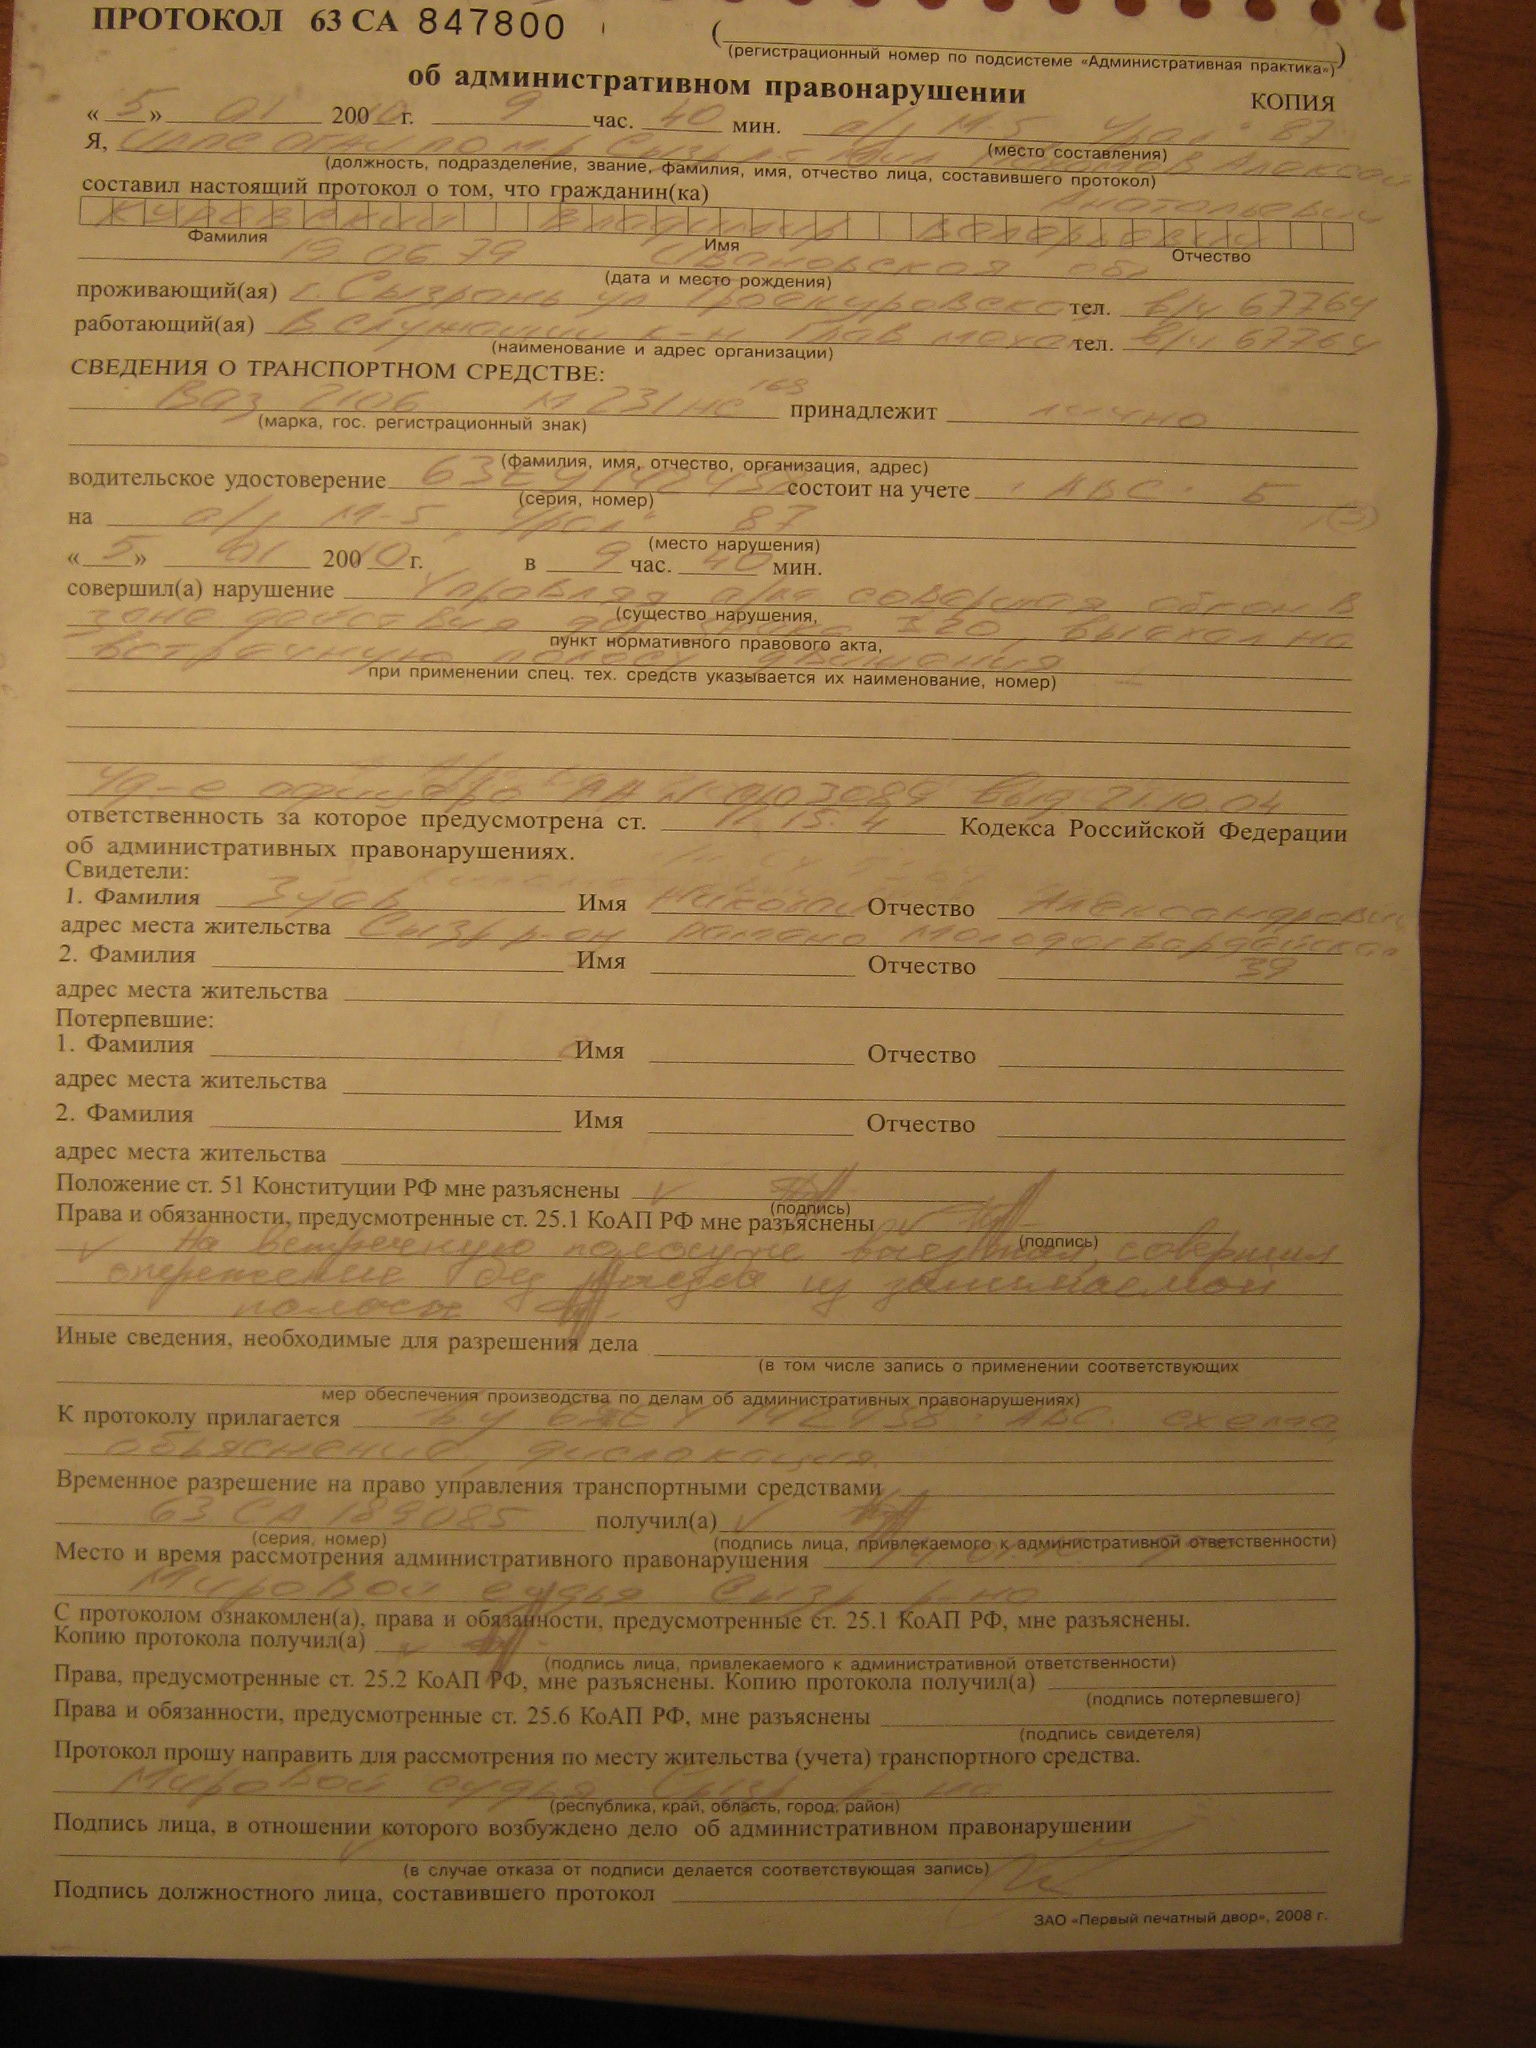 ПРОТОКОЛ 63 СА 847800
(регистрационный номер по подсистеме «Административная практика»)
об административном правонарушении
КОПИЯ
« 5 » 01 200 10 г. 9 час. 40 мин. а/д М-5 "Урал" 87
(место составления)
Я,
(должность, подразделение, звание, фамилия, имя, отчество лица, составившего протокол)
составил настоящий протокол о том, что гражданин(ка) Анатольевич
Владимир Валерьевич
Фамилия Имя Отчество
19 06 79 Ивановская обл
(дата и место рождения)
проживающий(ая) г. Сызрань ул тел. в/ч 67764
работающий(ая) тел. в/ч 67764
(наименование и адрес организации)
СВЕДЕНИЯ О ТРАНСПОРТНОМ СРЕДСТВЕ:
Ваз 2106 М 231 НС 163 принадлежит лично
(марка, гос. регистрационный знак)
(фамилия, имя, отчество, организация, адрес)
водительское удостоверение состоит на учете
(серия, номер)
на а/д М-5 "Урал" 87
(место нарушения)
« 5 » 01 200 10 г. в 9 час. 40 мин.
совершил(а) нарушение Управляя а/м совершая обгон в
(существо нарушения,
зоне действия знака 3.20, выехал на
пункт нормативного правового акта,
встречную полосу движения
при применении спец. тех. средств указывается их наименование, номер)
выд. 21.10.04
ответственность за которое предусмотрена ст. 12.15.4 Кодекса Российской Федерации
об административных правонарушениях.
Свидетели:
1. Фамилия Имя Николай Отчество Александрович
адрес места жительства Сызр р-он Молодогвардейская
39
2. Фамилия Имя Отчество
адрес места жительства
Потерпевшие:
1. Фамилия Имя Отчество
адрес места жительства
2. Фамилия Имя Отчество
адрес места жительства
Положение ст. 51 Конституции РФ мне разъяснены
(подпись)
Права и обязанности, предусмотренные ст. 25.1 КоАП РФ мне разъяснены
(подпись)
На встречную полосу не выезжал, совершил
опережение без выезда из занимаемой
полосы
Иные сведения, необходимые для разрешения дела
(в том числе запись о применении соответствующих
мер обеспечения производства по делам об административных правонарушениях)
К протоколу прилагается схема,
объяснение, дислокация.
Временное разрешение на право управления транспортными средствами
63 СА 189085 получил(а)
(серия, номер) (подпись лица, привлекаемого к административной ответственности)
Место и время рассмотрения административного правонарушения
Мировой судья Сызр р-на
С протоколом ознакомлен(а), права и обязанности, предусмотренные ст. 25.1 КоАП РФ, мне разъяснены.
Копию протокола получил(а)
(подпись лица, привлекаемого к административной ответственности)
Права, предусмотренные ст. 25.2 КоАП РФ, мне разъяснены. Копию протокола получил(а)
(подпись потерпевшего)
Права и обязанности, предусмотренные ст. 25.6 КоАП РФ, мне разъяснены
(подпись свидетеля)
Протокол прошу направить для рассмотрения по месту жительства (учета) транспортного средства.
Мировой судья Сызр р-на
(республика, край, область, город, район)
Подпись лица, в отношении которого возбуждено дело об административном правонарушении
(в случае отказа от подписи делается соответствующая запись)
Подпись должностного лица, составившего протокол
ЗАО «Первый печатный двор», 2008 г.